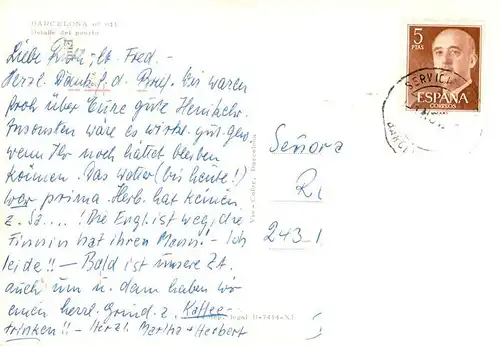 BARCELONA nº 841
Detalle del puerto
Liebe Fred. -
Herzl. Dank f. d. Brief. Wir waren
froh über Eure gute Heimkehr.
Ansonsten wäre es wirkl. gut gew.
wenn Ihr noch hättet bleiben
können. Das Wetter (bis heute!)
war prima. Herb. hat keinen
z. Sa....! Die Engl. ist weg, die
Finnin hat ihren Mann! - Ich
leide!! - Bald ist unsere Zt.
auch um u. dann haben wir
einen herrl. Grund z. Kaffee-
trinken!! - Herzl. Martha + Herbert
Señora
R
243
5
PTAS
ESPAÑA
CORREOS
SERVICI
BARC
Barcelona
legal B-7414-XI